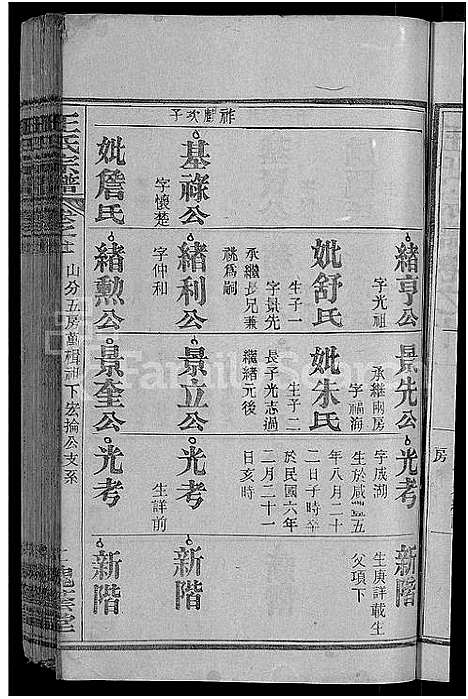 緒亨公
字光祖
妣舒氏
生子一
字景先
承繼長兄兼
祧爲嗣
景先公
承繼兩房
字福海
妣朱氏
生子二
長子光志過
繼緒元後
光考
字咸湖
生於咸豐五
年八月二十
二日子時卒
於民國六年
二月二十一
日亥時
新階
生庚詳載生
父項下
房
祚獻次子
基祿公
字懷楚
緒利公
字仲和
景立公
光考
生詳前
新階
妣詹氏
緒勲公
景奎公
光考
新階
王氏宗譜
山分五房萬楫祚下宏掄公支系
三槐堂
FamilySearch